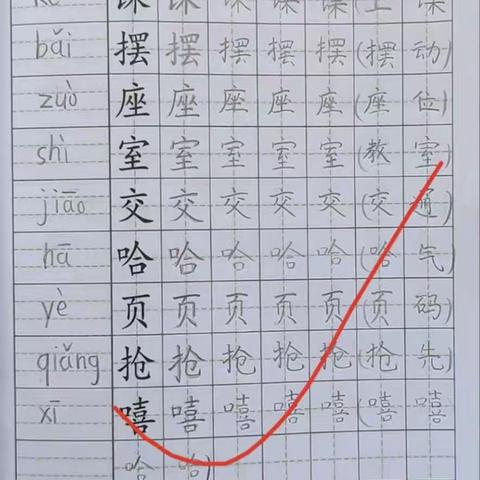 bǎi 摆 摆 摆 摆 摆 (摆 动)
zuò 座 座 座 座 座 (座 位)
shì 室 室 室 室 室 (教 室)
jiāo 交 交 交 交 交 (交 通)
hā 哈 哈 哈 哈 哈 (哈 气)
yè 页 页 页 页 页 (页 码)
qiǎng 抢 抢 抢 抢 抢 (抢 先)
xī 嘻 嘻 嘻 嘻 嘻 (嘻 嘻
哈 哈)